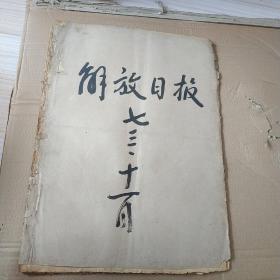 解放日报
七三·十一月